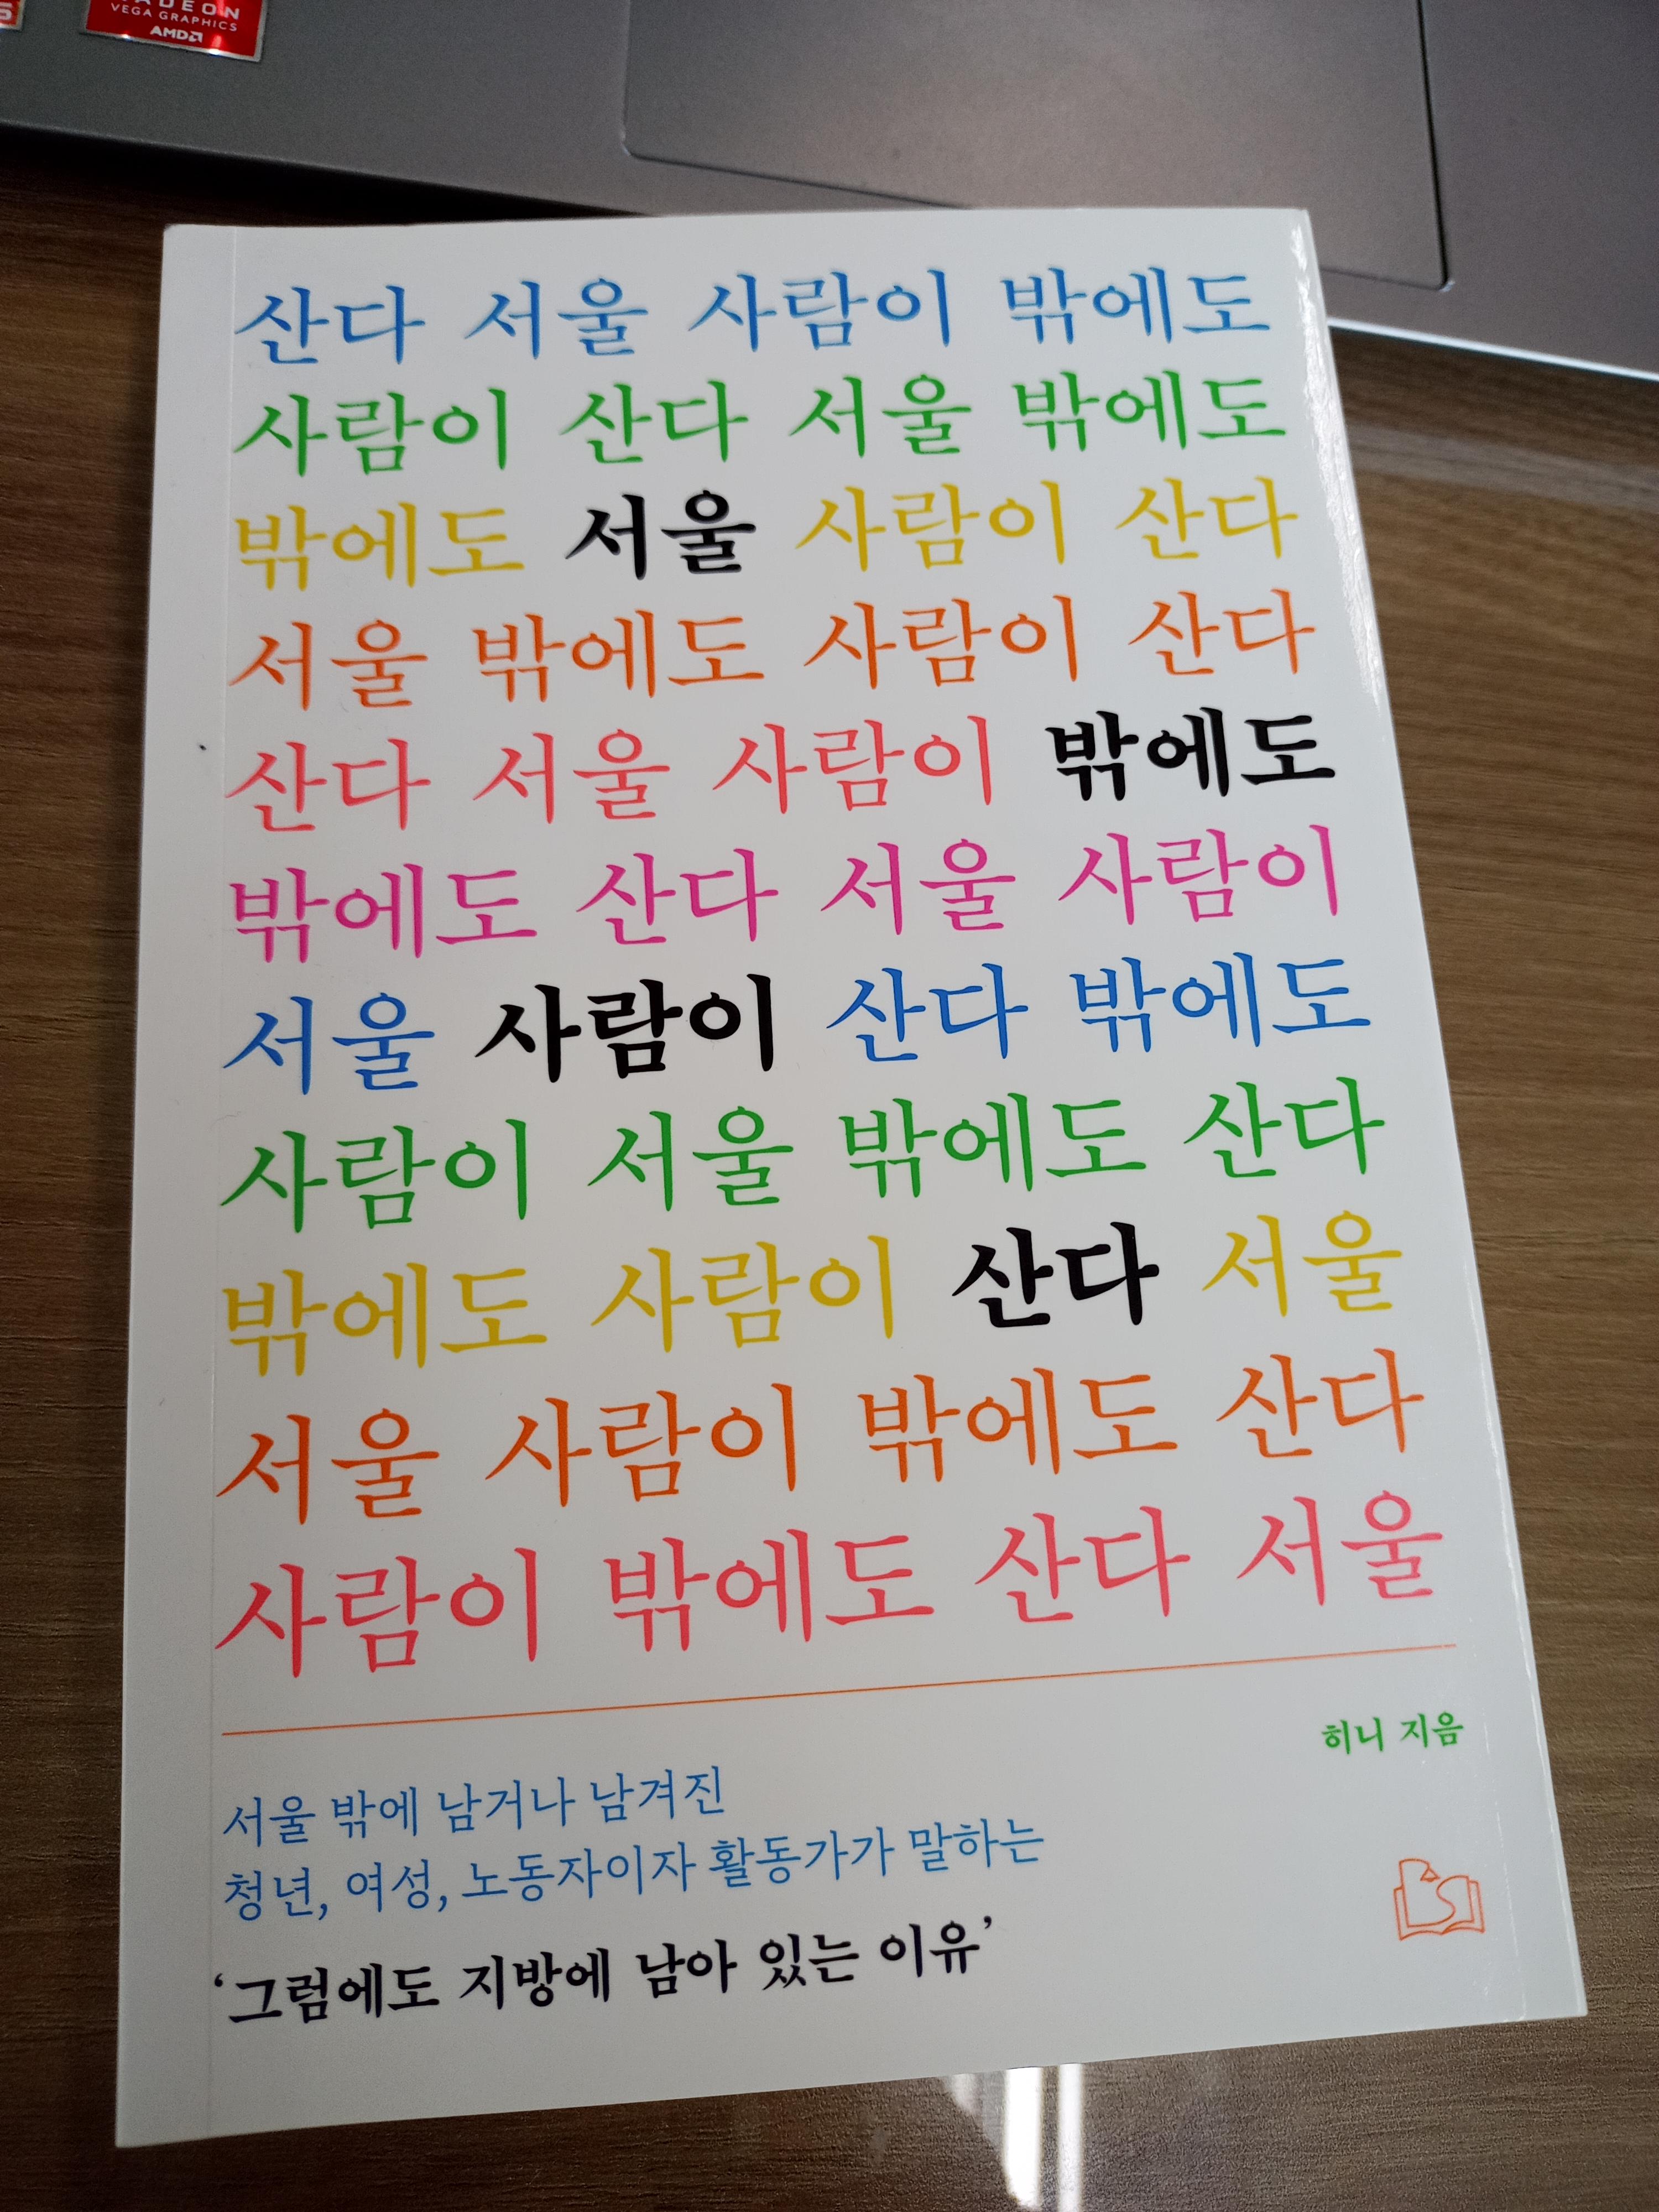 RADEON
VEGA GRAPHICS
AMD
산다 서울 사람이 밖에도
사람이 산다 서울 밖에도
밖에도 서울 사람이 산다
서울 밖에도 사람이 산다
산다 서울 사람이 밖에도
밖에도 산다 서울 사람이
서울 사람이 산다 밖에도
사람이 서울 밖에도 산다
밖에도 사람이 산다 서울
서울 사람이 밖에도 산다
사람이 밖에도 산다 서울
히니 지음
서울 밖에 남거나 남겨진
청년, 여성, 노동자이자 활동가가 말하는
‘그럼에도 지방에 남아 있는 이유’